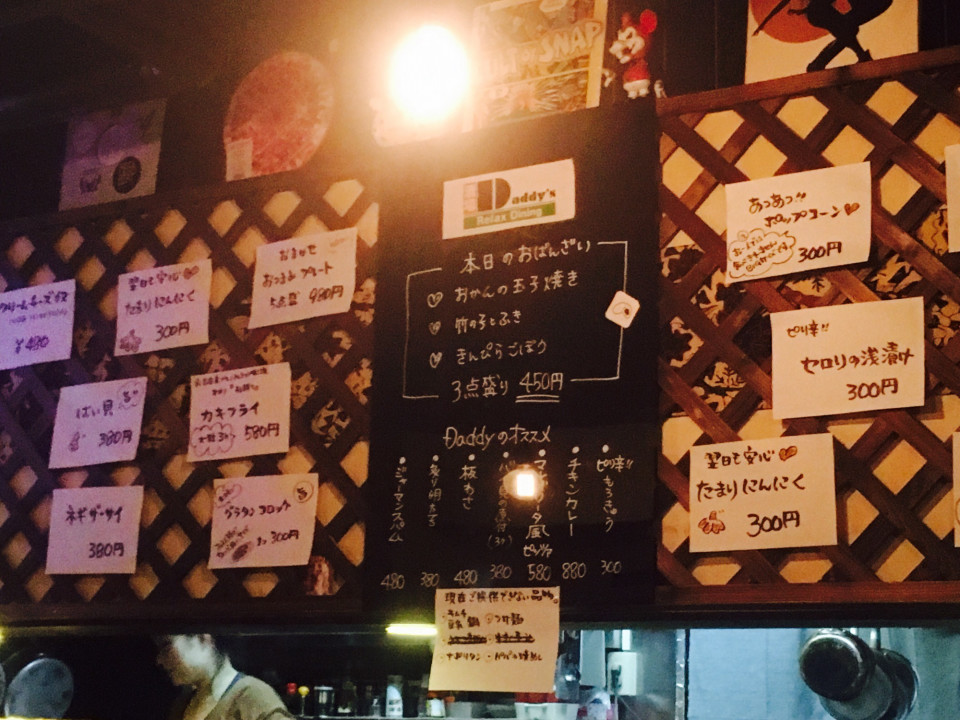 Daddy's
Relax Dining
本日のおばんざい
おかんの玉子焼き
竹の子とふき
きんぴらごぼう
3点盛り 450円
Daddyのオススメ
ピリ辛!! もろきゅう 300
チキンカレー 880
580
380
板わさ 480
炙り明太子 380
ジャーマンスパム 480
¥480
翌日も安心
たまりにんにく
300円
おまかせ
おつまみプレート
5点盛 980円
ばい貝
380円
カキフライ
580円
ネギザーサイ
380円
グラタンコロッケ
300円
あつあつ!!
ポップコーン
300円
ピリ辛!!
セロリの浅漬け
300円
翌日も安心
たまりにんにく
300円
現在ご提供できない品物
つけ麺
ナポリタン